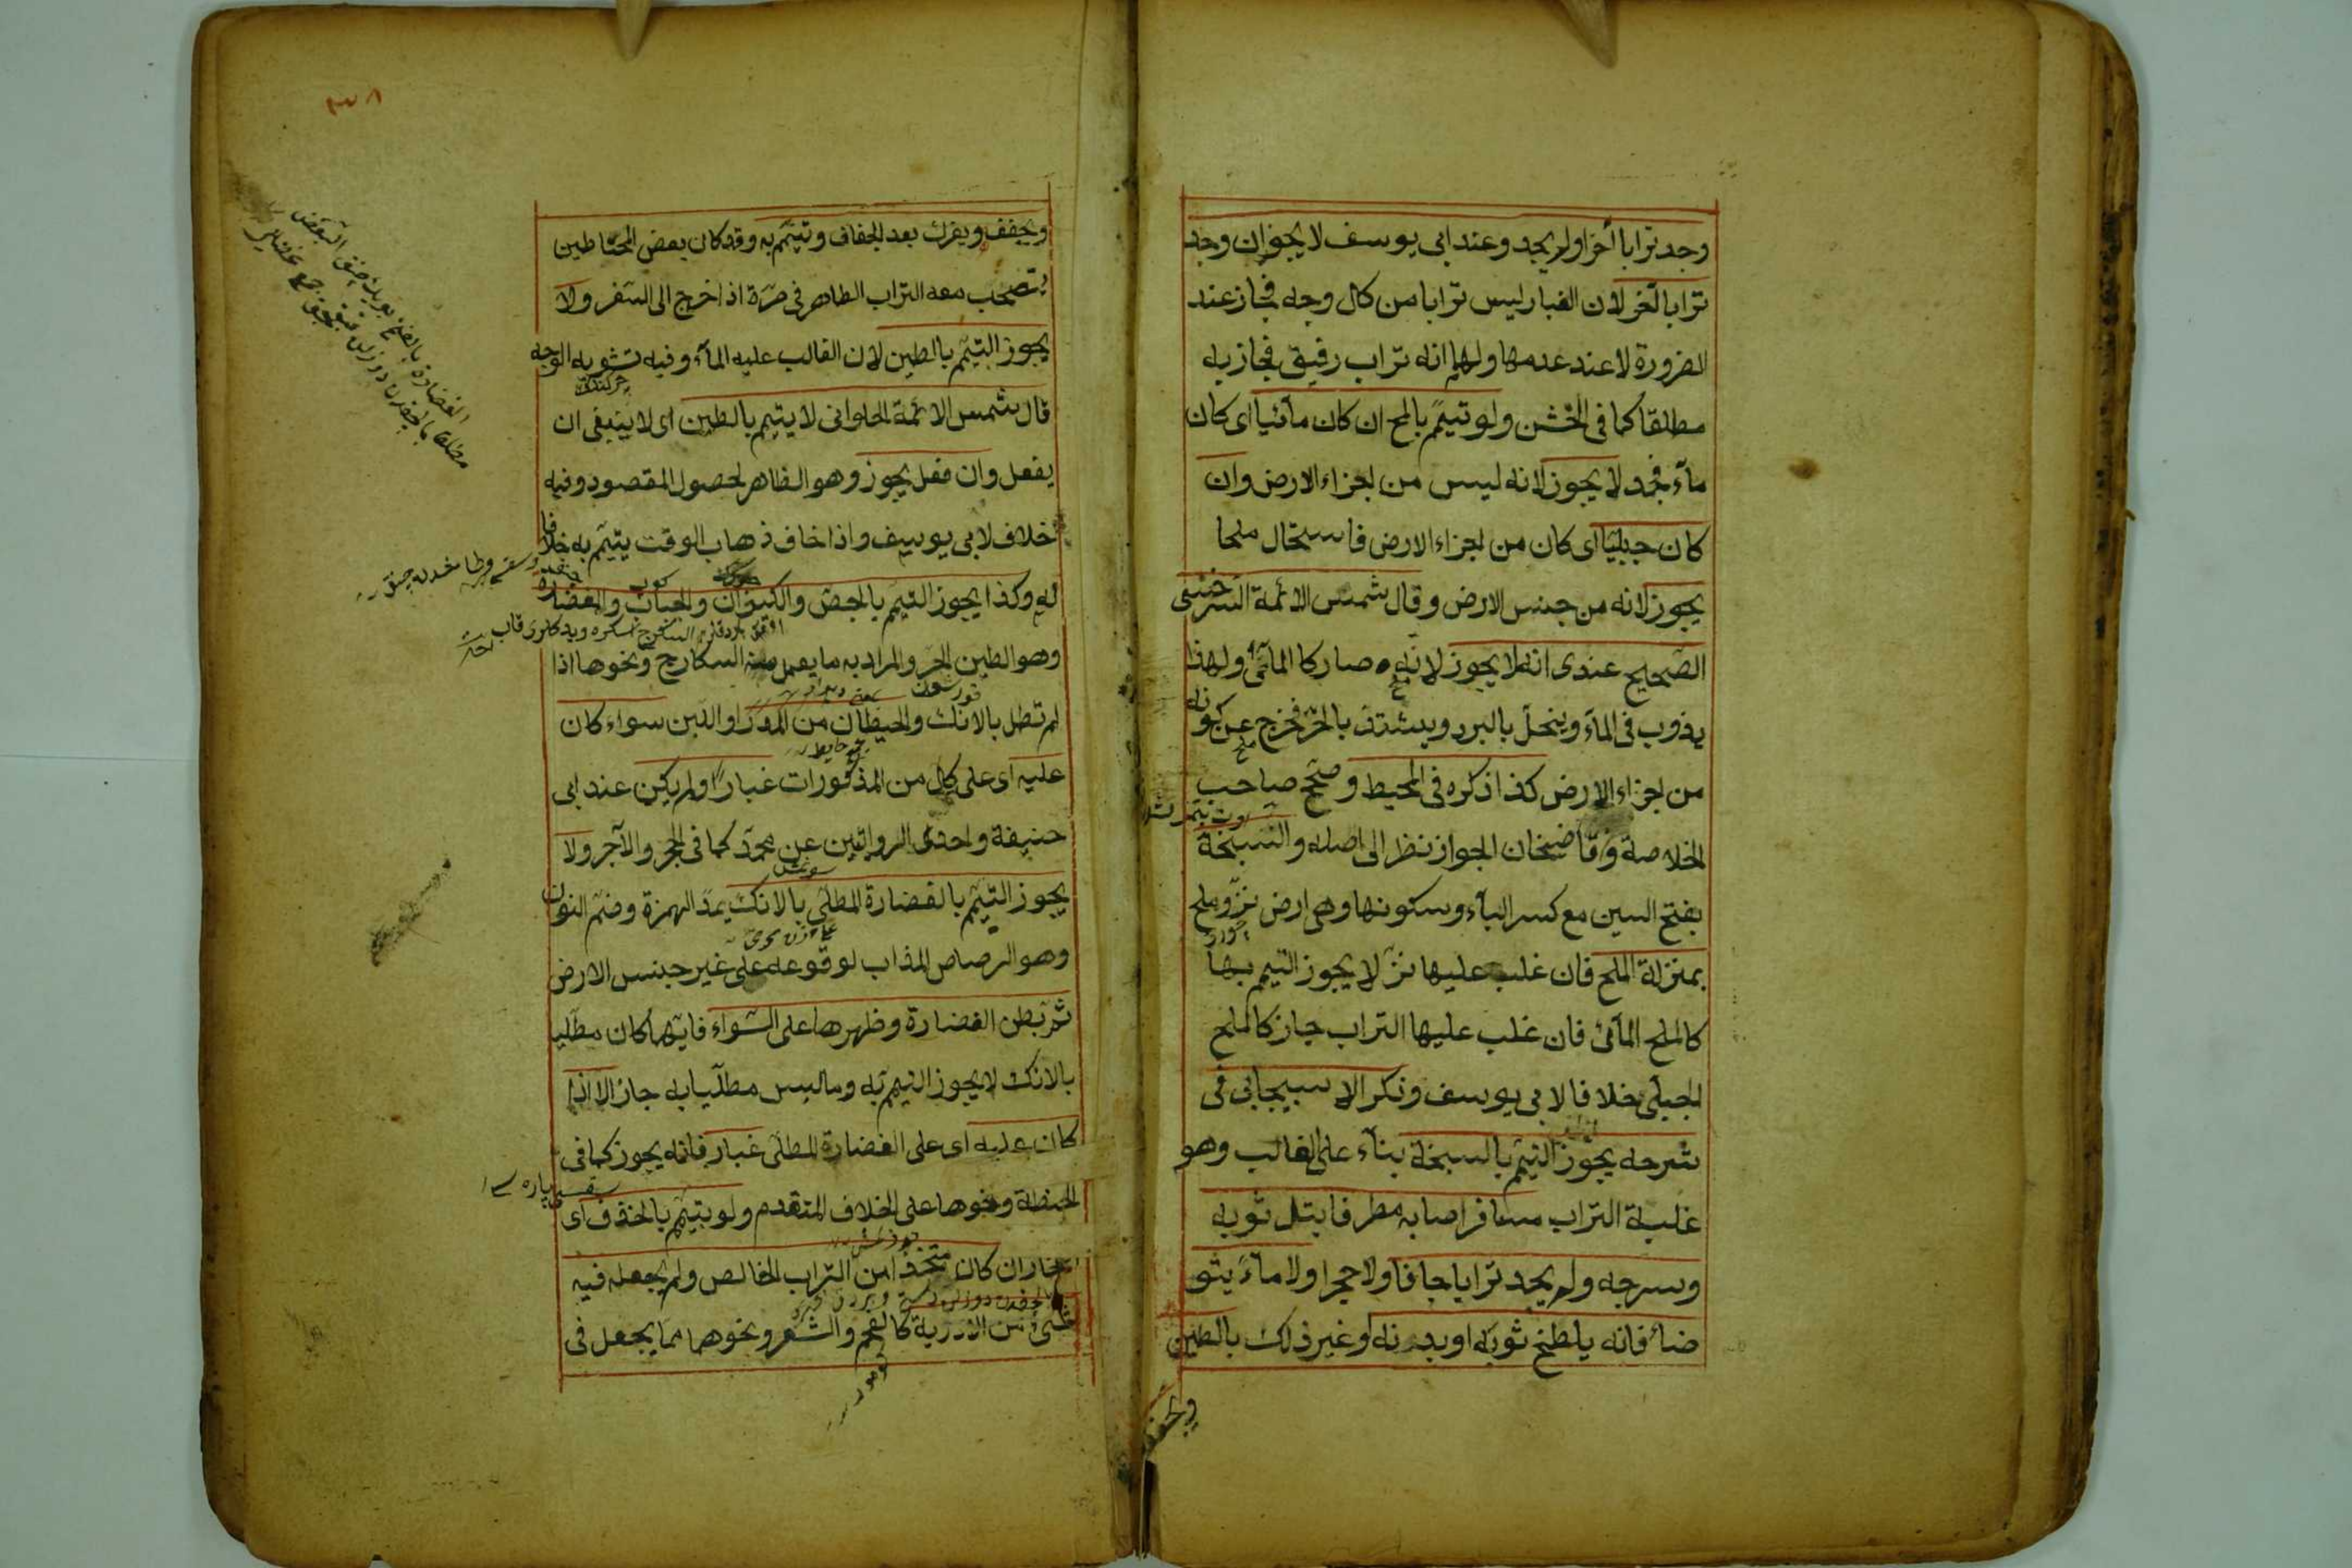 وجد ترابا آخر او لم يجد وعند ابى يوسف لا يجوز ان وجد
ترابا آخر لان الغبار ليس ترابا من كل وجه فجاز عند
الضرورة لا عند عدمها ولهما انه تراب رقيق فجاز به
مطلقا كما فى الخشن ولو تيمم بالملح ان كان مائيا اى كان
ماء فجمد لا يجوز لانه ليس من اجزاء الارض وان
كان جبليا اى كان من اجزاء الارض فاستحال ملحا
يجوز لانه من جنس الارض وقال شمس الائمة السرخسى
الصحيح عندى انه لا يجوز لانه صار كالمائى ولهذا
يذوب فى الماء وينحل بالبرد ويشتد بالحر فخرج عن كونه
من اجزاء الارض كذا ذكره فى المحيط وصحح صاحب
الخلاصة وقاضيخان الجواز نظرا الى اصله والسبخة
بفتح السين مع كسر الباء وسكونها وهى ارض نز وملح
بمنزلة الملح فان غلب عليها نز لا يجوز التيمم بها
كالملح المائى فان غلب عليها التراب جاز كالملح
الجبلى خلافا لابى يوسف وذكر الاسبيجابى فى
شرحه يجوز التيمم بالسبخة بناء على الغالب وهو
غلبة التراب مسافر اصابه مطر فابتل ثوبه
وسرجه ولم يجد ترابا جافا ولا حجرا ولا ماء يتو
ضأ فانه يلطخ ثوبه او بدنه او غير ذلك بالطين
ويجفف
ويجفف ويفرك بعد الجفاف وتيمم به وقد كان بعض المحتاطين
يستصحب معه التراب الطاهر فى صرة اذا خرج الى السفر ولا
يجوز التيمم بالطين لان الغالب عليه الماء وفيه تشويه الوجه
قال شمس الائمة الحلوانى لا يتيمم بالطين اى لا ينبغى ان
يفعل وان فعل يجوز وهو الظاهر لحصول المقصود وفيه
خلاف لابى يوسف واذا خاف ذهاب الوقت يتيمم به خلافا
له وكذا يجوز التيمم بالجص والكيزان والحباب والغضارة
وهو الطين الحر والمراد به ما يعمل منه السكارج ونحوها اذا
لم تطل بالانك والحيطان من المدر او اللبن سواء كان
عليه اى على كل من المذكورات غبار او لم يكن عند ابى
حنيفة واحدى الروايتين عن محمد كما فى الحجر والآجر ولا
يجوز التيمم بالغضارة المطلى بالانك بمد الهمزة وضم النون
وهو الرصاص المذاب لوقوعه على غير جنس الارض
ثم بطن الغضارة وظهرها على السواء فايتهما كان مطليا
بالانك لا يجوز التيمم به وما ليس مطليا به جاز الا اذا
كان عليه اى على الغضارة المطلى غبار فانه يجوز كما فى
الحنطة ونحوها على الخلاف المتقدم ولو يتيمم بالخذف اى
الفخار ان كان متخذا من التراب الخالص ولم يجعل فيه
شئ من الادوية كالفحم والشعر ونحوهما مما يجعل فى